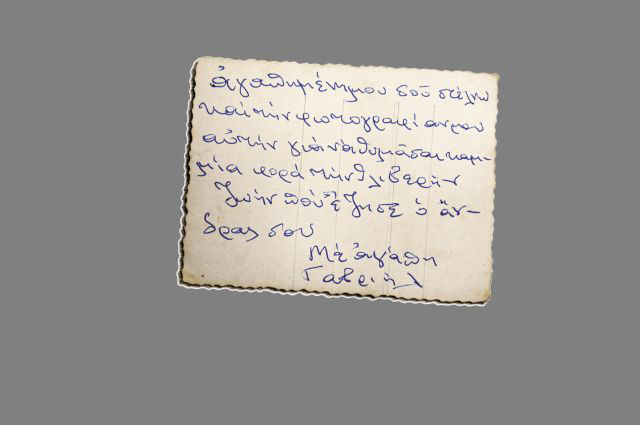 ἀγαπημένη μου σοῦ στέλνω
καὶ τὴν φωτογραφίαν μου
αὐτὴν γιὰ νὰ θυμᾶσαι καμ-
μία φορὰ τὴν θλιβερὴν
ζωὴν ποὺ ἔζησε ὁ ἄν-
δρας σου
Μὲ ἀγάπη
Γαβριήλ